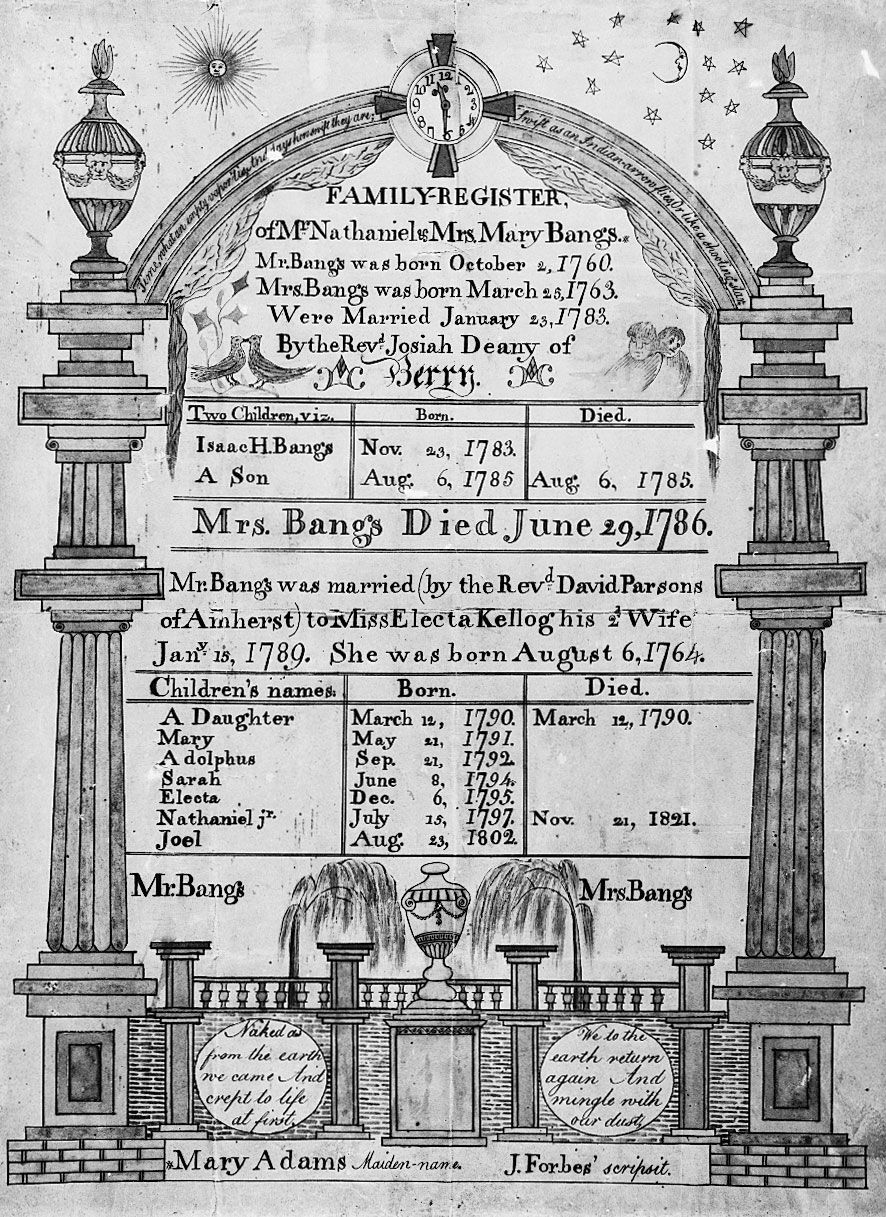 Time what an empty vapor tis, And days how swift they are;
Swift as an Indian arrow flies Or like a shooting star
11 12 1 2 3 4 5 6 7 8 9 10
FAMILY-REGISTER,
of Mr. Nathaniel & Mrs. Mary Bangs.
Mr. Bangs was born October 2, 1760.
Mrs. Bangs was born March 25, 1763.
Were Married January 23, 1783.
By the Revd. Josiah Deany of
Berry.
Two Children, viz. Born. Died.
Isaac H. Bangs Nov. 23, 1783.
A Son Aug. 6, 1785 Aug. 6, 1785.
Mrs. Bangs Died June 29, 1786.
Mr. Bangs was married (by the Revd. David Parsons
of Amherst) to Miss Electa Kellog his 2d Wife
Jany. 15, 1789. She was born August 6, 1764.
Children's names. Born. Died.
A Daughter March 12, 1790. March 12, 1790.
Mary May 21, 1791.
Adolphus Sep. 21, 1792.
Sarah June 8, 1794.
Electa Dec. 6, 1795.
Nathaniel jr. July 15, 1797. Nov. 21, 1821.
Joel Aug. 23, 1802.
Mr. Bangs Mrs. Bangs
Naked as
from the earth
we came And
crept to life
at first,
We to the
earth return
again And
mingle with
our dust,
*Mary Adams Maiden-name. J. Forbes' scripsit.